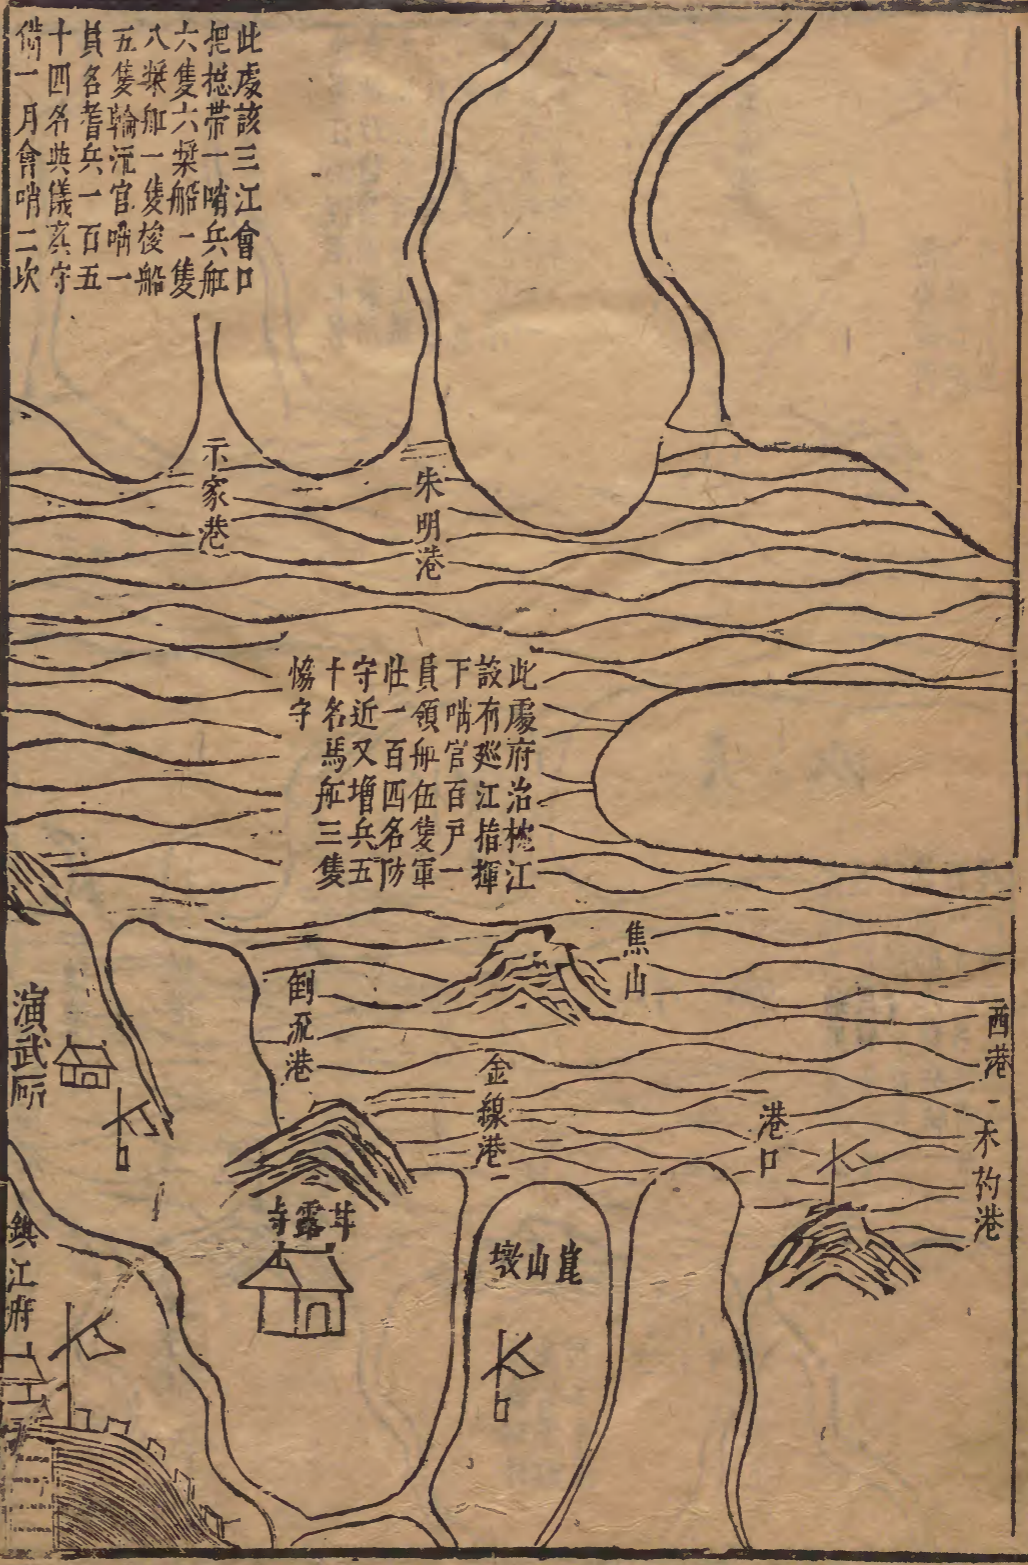 此處該三江會口
把揔帶一哨兵舡
六隻六槳船一隻
八槳舡一隻梭船
五隻輪流官哨一
員名耆兵一百五
十四名與儀真守
備一月會哨二次
示家港
朱明港
此處府治枕江
設有廵江指揮
下哨官百戶一
員領舡伍隻軍
壯一百四名防
守近又增兵五
十名馬舡三隻
恊守
焦山
西港
禾豹港
港口
金線港
倒流港
演武所
甘露寺
崑山墩
鎮江府